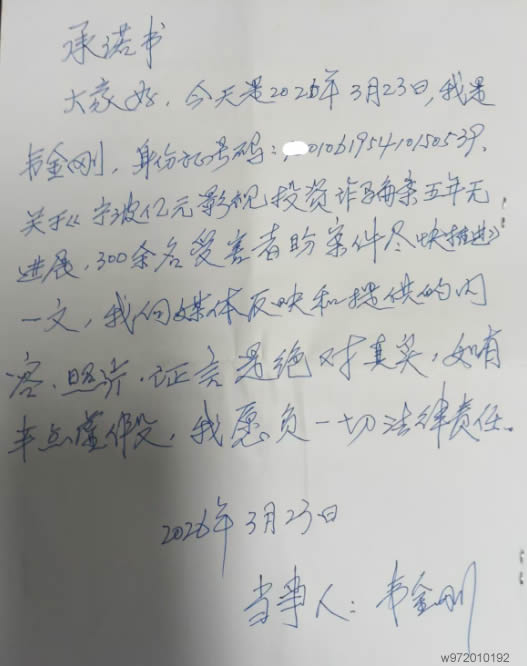 承诺书
大家好,今天是2026年3月23日,我是
韦金刚,身份证号码:0106195410150539.
关于《宁波亿元影视投资诈骗案五年无
进展,300余名受害者盼案件尽快推进》
一文,我向媒体反映和提供的内
容、照片、证言是绝对真实,如有
半点虚假,我愿负一切法律责任。
2026年3月23日
当事人:韦金刚
w972010192